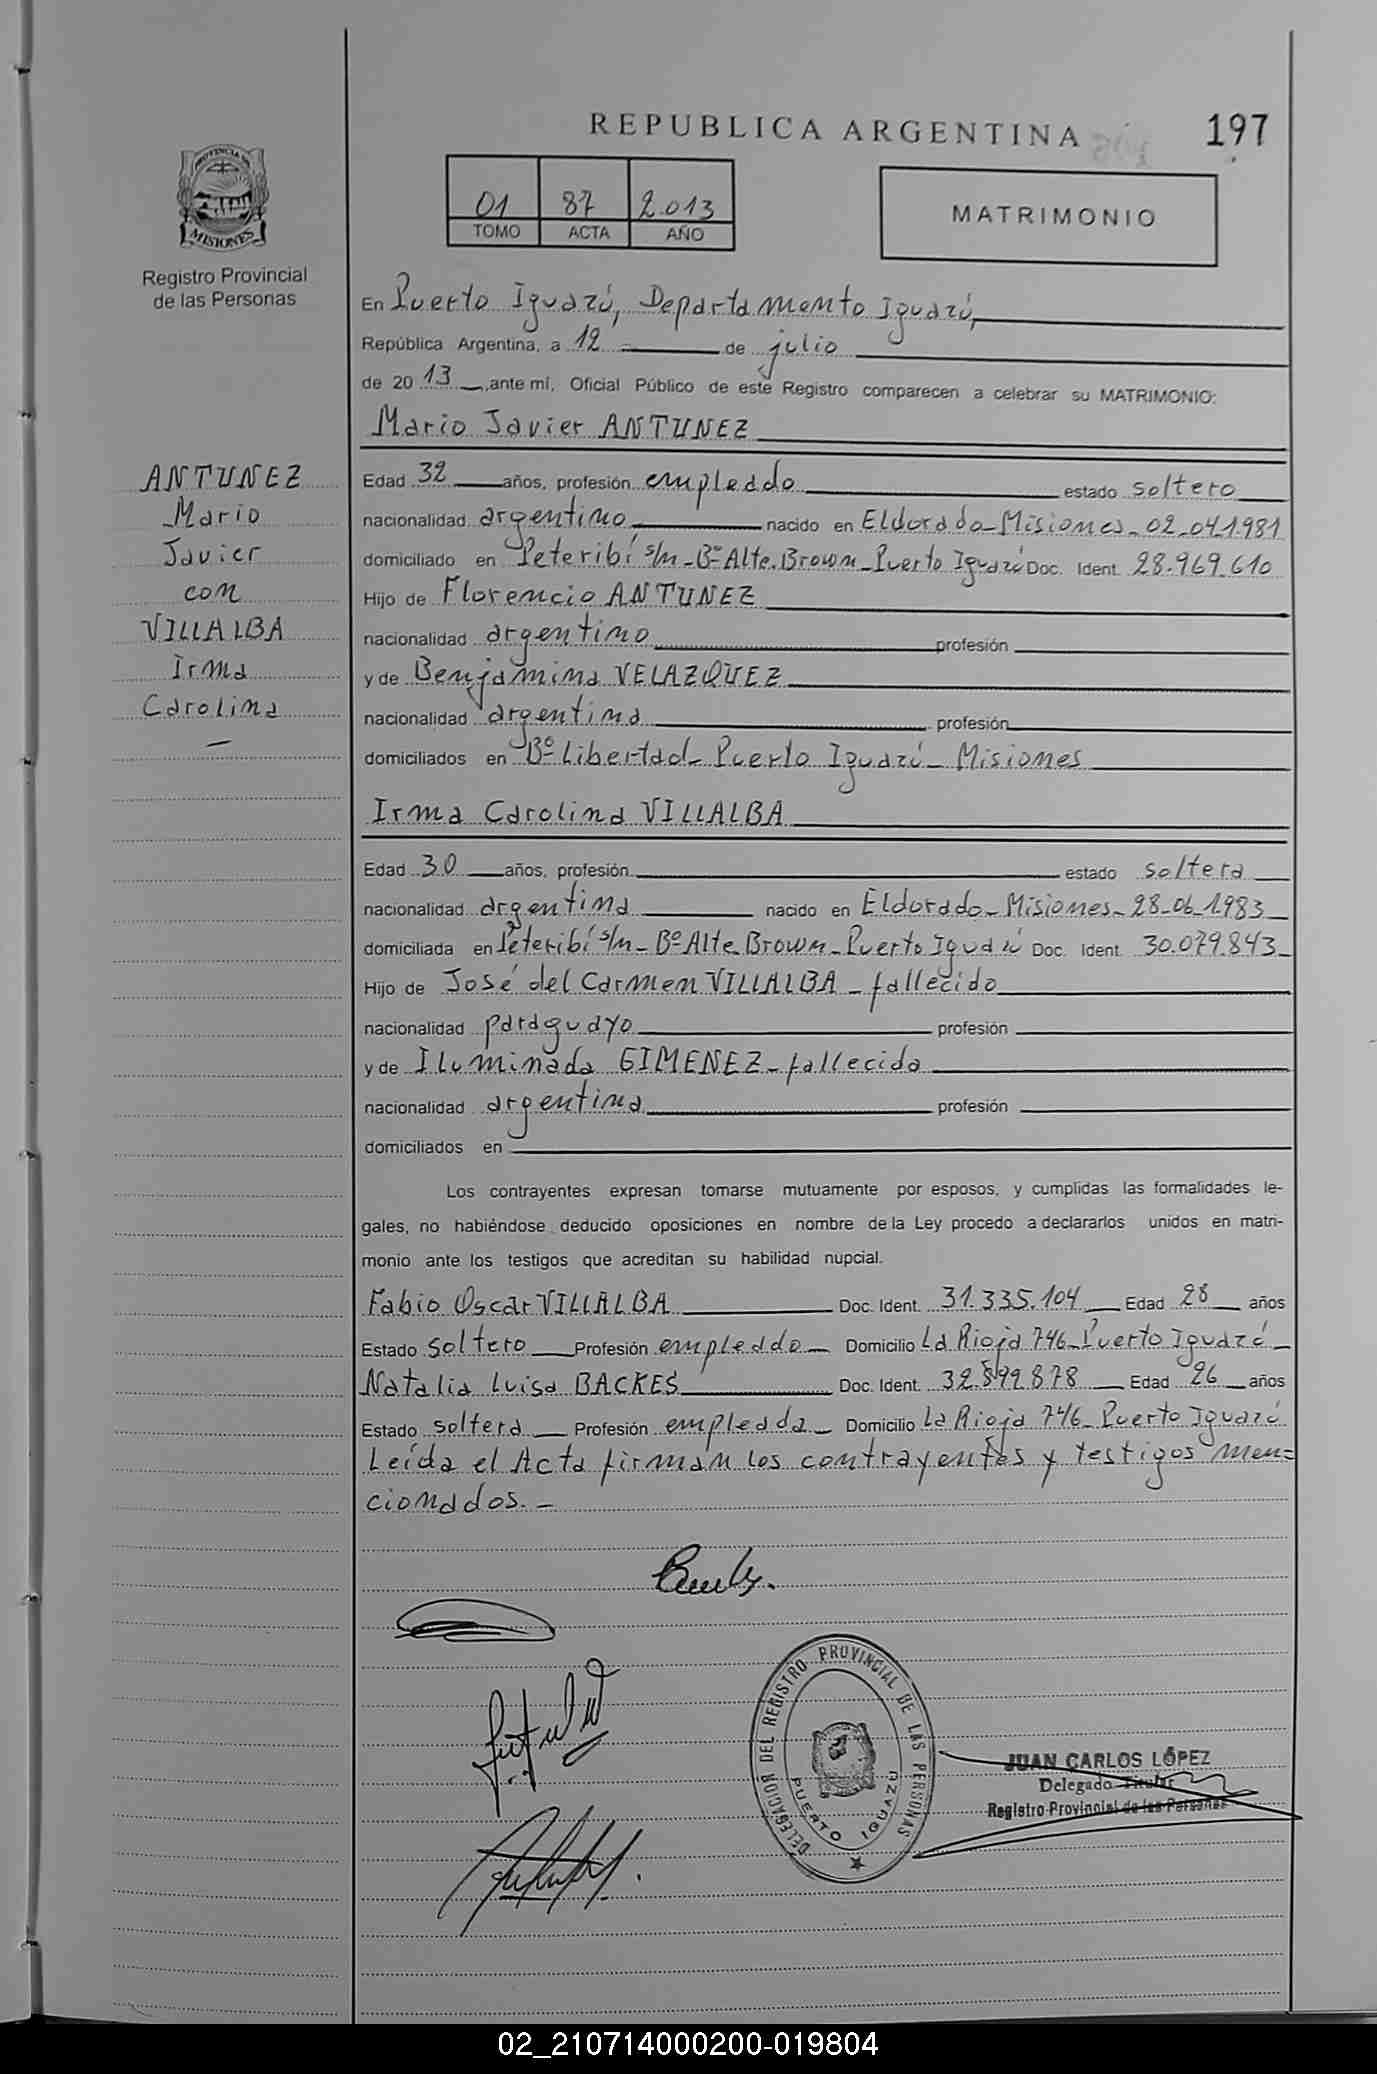 REPUBLICA ARGENTINA 197
PROVINCIA DE
MISIONES
Registro Provincial
de las Personas
01 87 2.013
TOMO ACTA AÑO
MATRIMONIO
En Puerto Iguazú, Departamento Iguazú,
República Argentina, a 12 de julio
de 2013, ante mí, Oficial Público de este Registro comparecen a celebrar su MATRIMONIO:
Mario Javier ANTUNEZ
ANTUNEZ
Mario
Javier
con
VILLALBA
Irma
Carolina
—
Edad 32 años, profesión empleado estado soltero
nacionalidad argentino nacido en Eldorado-Misiones-02-04-1.981
domiciliado en Peteribí s/n-Bº Alte. Brown-Puerto Iguazú Doc. Ident. 28.969.610
Hijo de Florencio ANTUNEZ
nacionalidad argentino profesión
y de Benjamina VELAZQUEZ
nacionalidad argentina profesión
domiciliados en Bº Libertad-Puerto Iguazú-Misiones
Irma Carolina VILLALBA
Edad 30 años, profesión estado soltera
nacionalidad argentina nacido en Eldorado-Misiones-28-06-1.983
domiciliada en Peteribí s/n-Bº Alte. Brown-Puerto Iguazú Doc. Ident. 30.079.843
Hijo de José del Carmen VILLALBA-fallecido
nacionalidad paraguayo profesión
y de Iluminada GIMENEZ-fallecida
nacionalidad argentina profesión
domiciliados en
Los contrayentes expresan tomarse mutuamente por esposos, y cumplidas las formalidades le-
gales, no habiéndose deducido oposiciones en nombre de la Ley procedo a declararlos unidos en matri-
monio ante los testigos que acreditan su habilidad nupcial.
Fabio Oscar VILLALBA Doc. Ident. 31.335.104 Edad 28 años
Estado soltero Profesión empleado Domicilio La Rioja 746-Puerto Iguazú
Natalia Luisa BACKES Doc. Ident. 32.899.878 Edad 26 años
Estado soltera Profesión empleada Domicilio La Rioja 746-Puerto Iguazú
Leída el Acta firman los contrayentes y testigos men=
cionados.-
DELEGACION DEL REGISTRO PROVINCIAL DE LAS PERSONAS
PUERTO IGUAZÚ
JUAN CARLOS LÓPEZ
Delegado Titular
Registro Provincial de las Personas
02_210714000200-019804